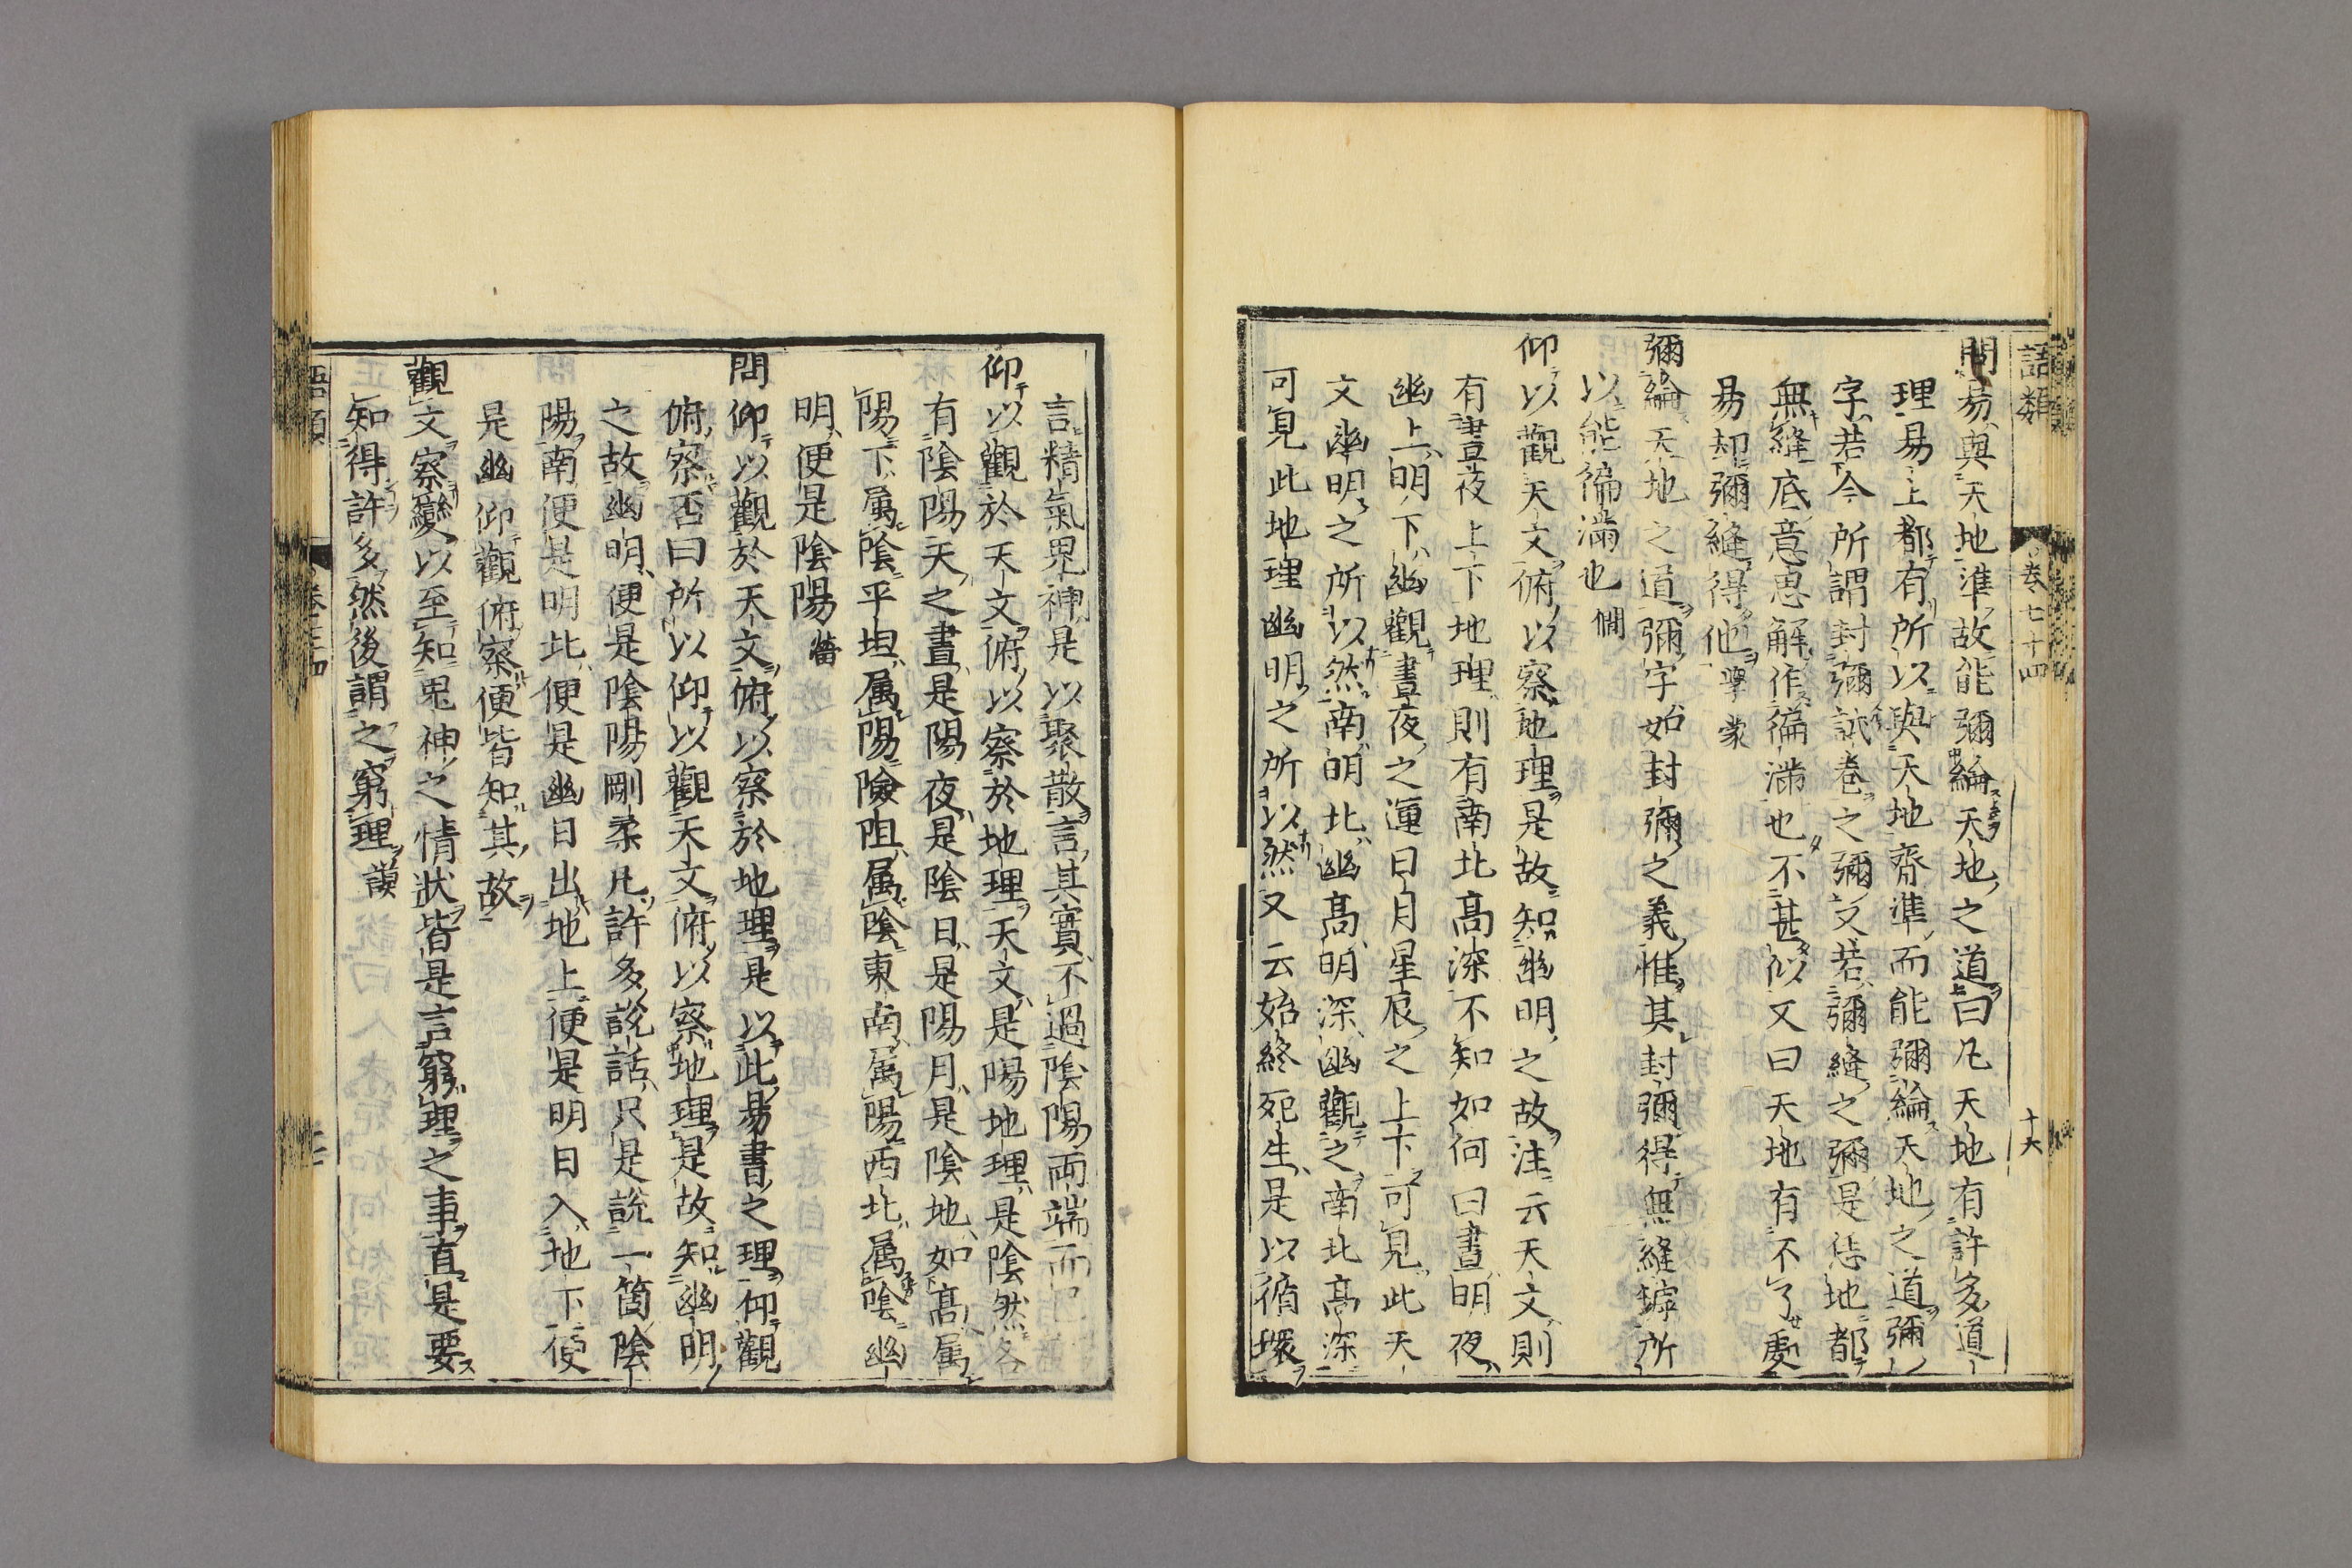 語類
卷七十四
十六
問易與天地準故能彌綸天地之道曰凡天地有許多道
理易上都有所以與天地齊準而能彌綸天地之道彌
字若今所謂封彌試卷之彌又若彌縫之彌是恁地都
無縫底意思解作徧滿也不甚似又曰天地有不了處
易却彌縫得他學蒙
彌綸天地之道彌字如封彌之義惟其封彌得無縫罅所
以能徧滿也僩
仰以觀天文俯以察地理是故知幽明之故注云天文則
有晝夜上下地理則有南北高深不知如何曰晝明夜
幽上明下幽觀晝夜之運日月星辰之上下可見此天
文幽明之所以然南明北幽高明深幽觀之南北高深
可見此地理幽明之所以然又云始終死生是以循環
言精氣鬼神是以聚散言其實不過陰陽兩端而已
仰以觀於天文俯以察於地理天文是陽地理是陰然各
有陰陽天之晝是陽夜是陰日是陽月是陰地如高属
陽下属陰平坦属陽險阻属陰東南属陽西北属陰幽
明便是陰陽㽦
問仰以觀於天文俯以察於地理是以此易書之理仰觀
俯察否曰所以仰以觀天文俯以察地理是故知幽明
之故幽明便是陰陽剛柔凡許多說話只是說一箇陰
陽南便是明北便是幽日出地上便是明日入地下便
是幽仰觀俯察便皆知其故
觀文察變以至知鬼神之情狀皆是言窮理之事直是要
知得許多然後謂之窮理謨
語類
卷七十四